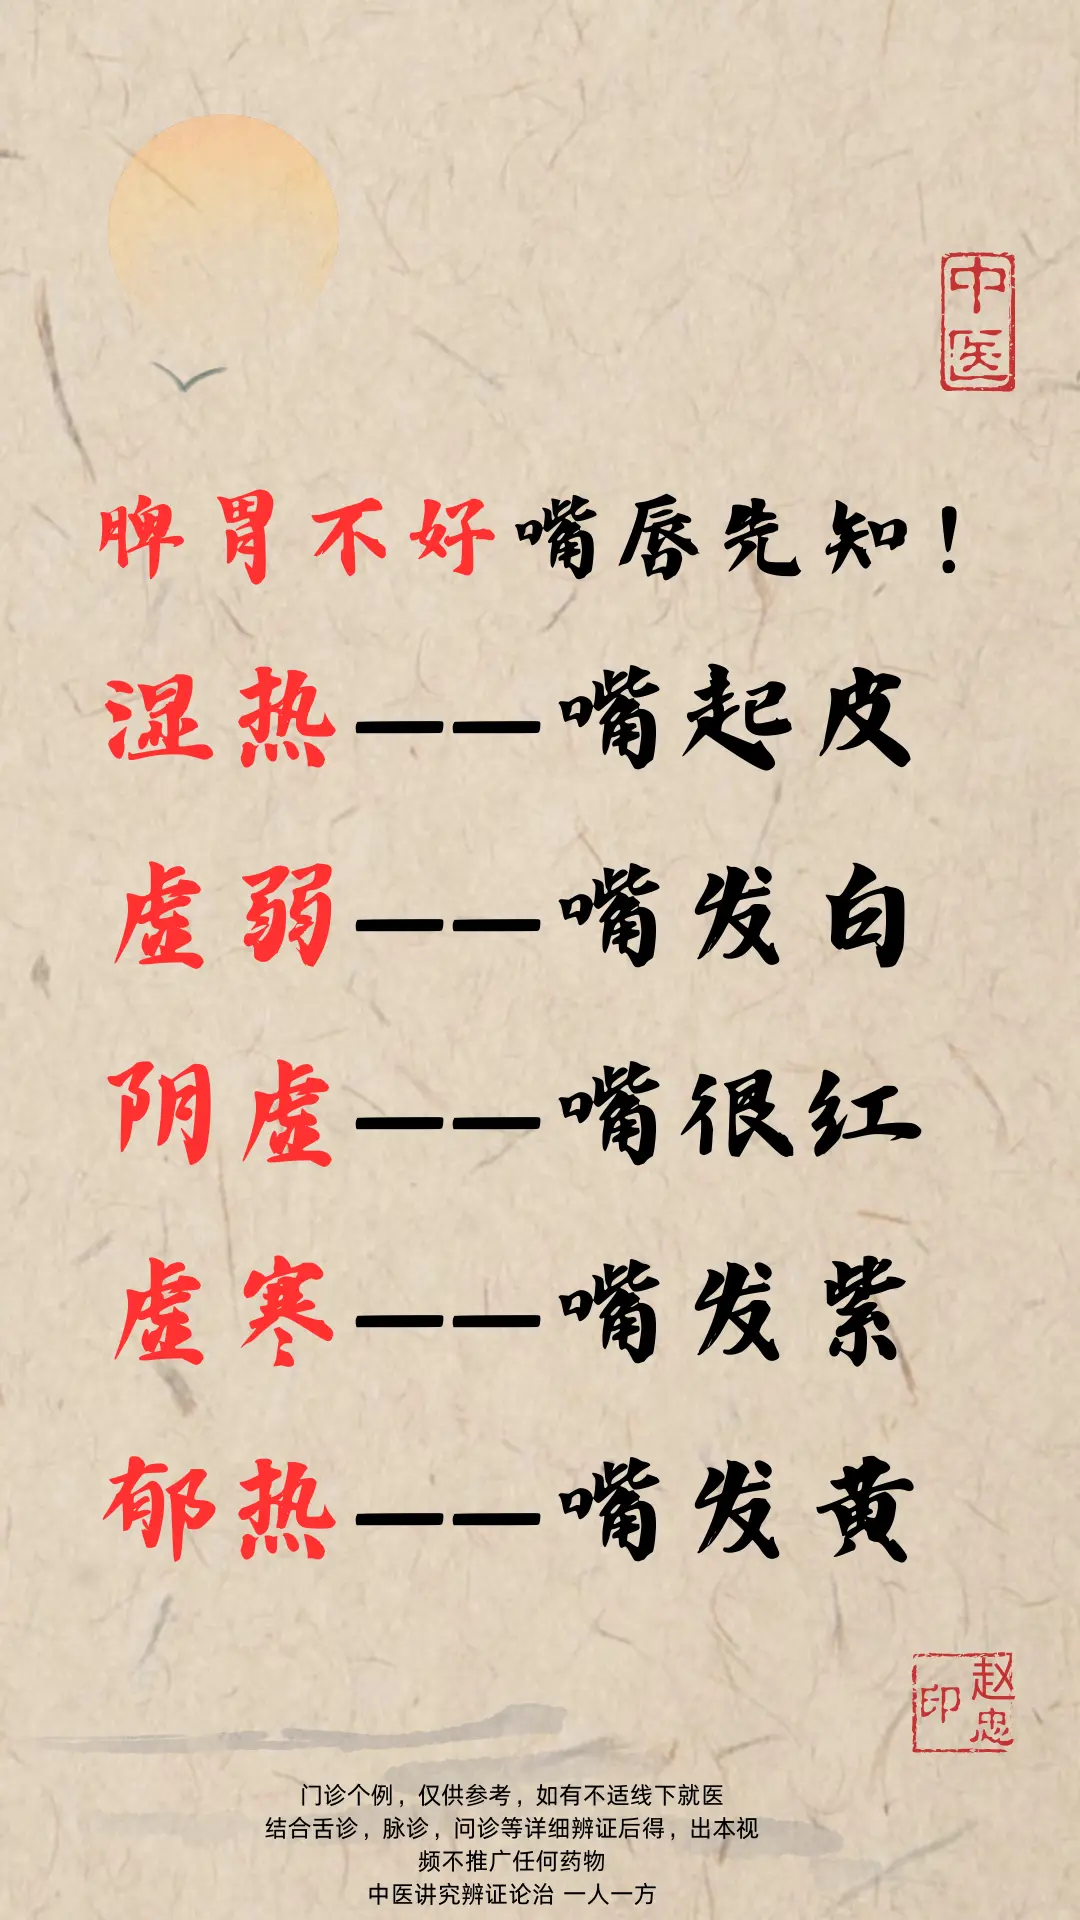 中医
脾胃不好嘴唇先知！
湿热——嘴起皮
虚弱——嘴发白
阴虚——嘴很红
虚寒——嘴发紫
郁热——嘴发黄
赵忠印
门诊个例，仅供参考，如有不适线下就医
结合舌诊，脉诊，问诊等详细辨证后得，出本视
频不推广任何药物
中医讲究辨证论治 一人一方